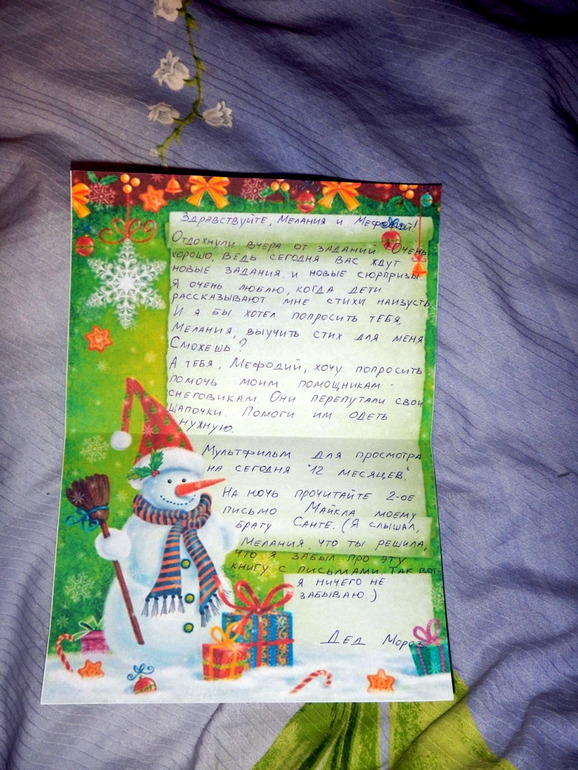 Здравствуйте, Мелания и Мефодий!
Отдохнули вчера от заданий? Очень
хорошо, ведь сегодня вас ждут
новые задания и новые сюрпризы.
Я очень люблю, когда дети
рассказывают мне стихи наизусть.
И я бы хотел попросить тебя,
Мелания, выучить стих для меня.
Сможешь?
А тебя, Мефодий, хочу попросить
помочь моим помощникам -
снеговикам. Они перепутали свои
шапочки. Помоги им одеть
нужную.
Мультфильм для просмотра
на сегодня "12 месяцев".
На ночь прочитайте 2-ое
письмо Майкла моему
брату Санте. (Я слышал,
Мелания, что ты решила,
что я забыл про эту
книгу с письмами. Так вот
я ничего не
забываю.)
Дед Мороз